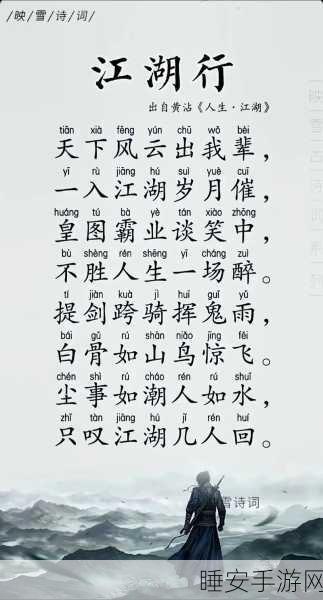 /映/雪/诗/词/
江湖行
出自黄沾《人生·江湖》
tiān xià fēng yún chū wǒ bèi
天下风云出我辈，
yī rù jiāng hú suì yuè cuī
一入江湖岁月催，
huáng tú bà yè tán xiào zhōng
皇图霸业谈笑中，
bù shèng rén shēng yī cháng zuì
不胜人生一场醉。
tí jiàn kuà jì huī guǐ yǔ
提剑跨骑挥鬼雨，
bái gǔ rú shān niǎo jīng fēi
白骨如山鸟惊飞。
chén shì rú cháo rén rú shuǐ
尘事如潮人如水，
zhǐ tàn jiāng hú jǐ rén huí
只叹江湖几人回。
雪诗词
睡安手游网